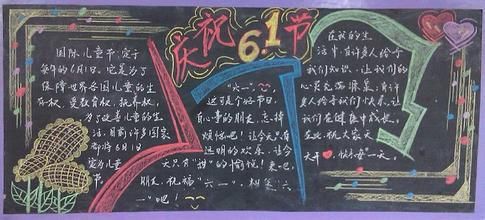 庆祝6.1节
国际儿童节，定于
每年的6月1日。它是为了
保障世界各国儿童的生
存权、受教育权、抚养权，
为了改善儿童的生
活，目前许多国家
都将6月1日
定为儿童
节。
"六一"，
这可是个好节日，
有心事的朋友，忘掉
烦恼吧！让今天只有
透明的欢乐，让今
天只有"甜"的愉悦！来吧，
朋友，祝福"六一"，相
"六
一"吧！
在我的生
活中，有许多人给予
我们知识，让我们的
心灵充满
，有许
多人给予我们快乐，让
我们在健康中成长，
在此，祝大家天天
开心，快乐每一天。